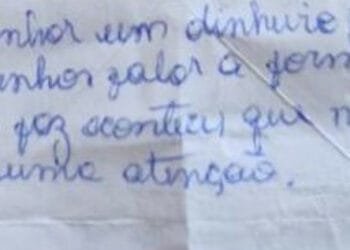 nhor um dinhuio
nhor falor a form
faz aconteci que n
uma atenção.